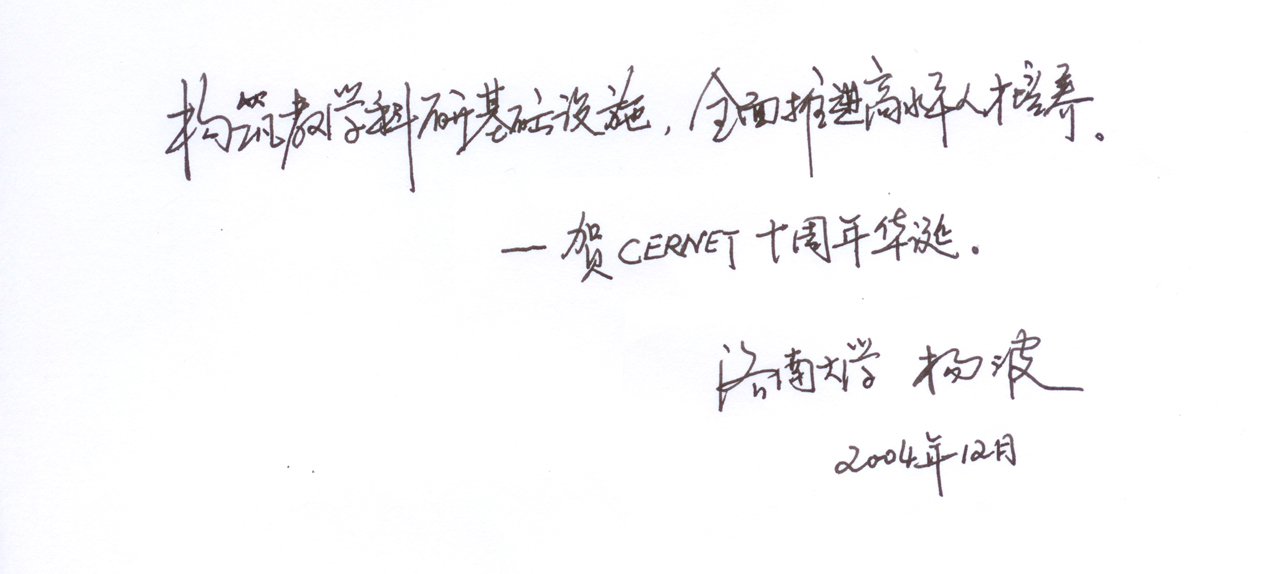 构筑教学科研基础设施，全面推进高水平人才培养。
—贺CERNET十周年华诞.
济南大学 杨波
2004年12月